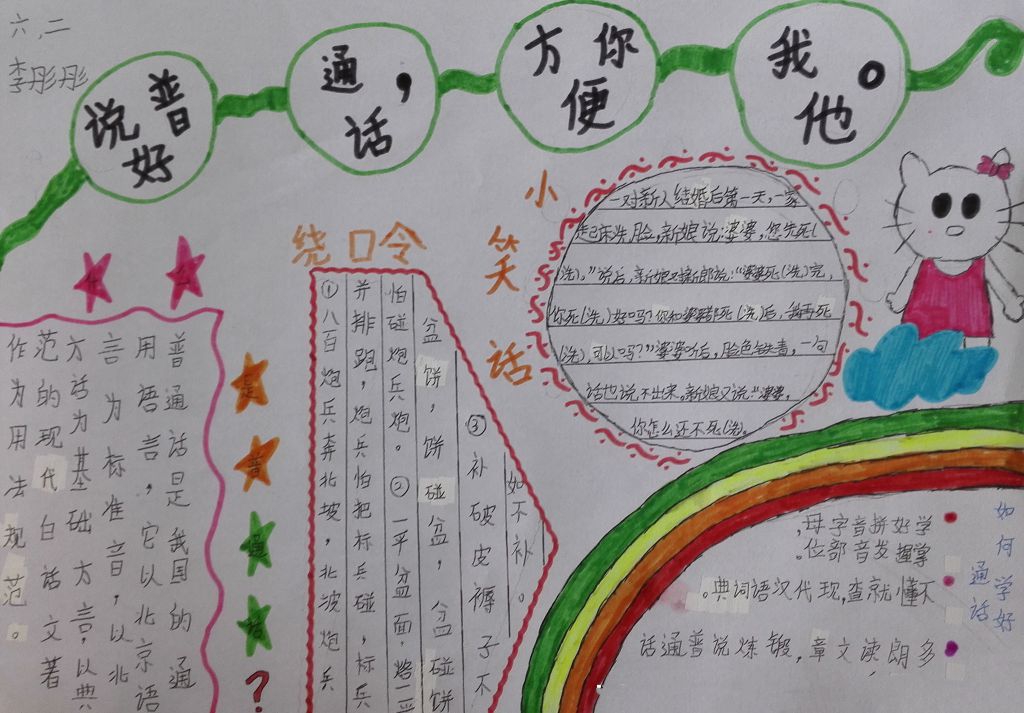 六.二
李彤彤
说好普
通话，
方便你
我他。
是普通话？
普通话是我国的通
用语言，它以北京语
言为标准音，以北
方话为基础方言，以典
范的现代白话文著
作为用法规范。
绕口令
①八百炮兵奔北坡，北波炮兵
并排跑，炮兵怕把标兵碰，标兵
怕碰炮兵炮。②一平盆面，烙一平
盆饼，饼碰盆，盆碰饼
③补破皮褥子不
如不补。
小笑话
一对新人结婚后第一天，一家
起床洗脸，新娘说：“婆婆，您先死（
（洗）。”说后，新娘又对新郎说：“婆婆死（洗）完，
你死（洗）好吗？你和婆婆都死（洗）后，我再死
（洗），可以吗？”婆婆听后，脸色铁青，一句
话也说不出来。新娘又说：“婆婆，
你怎么还不死（洗）。
如何学好
通话
学好拼音字母，
掌握发音部位。
不懂就查，现代汉语词典。
多朗读文章，锻炼说普通话